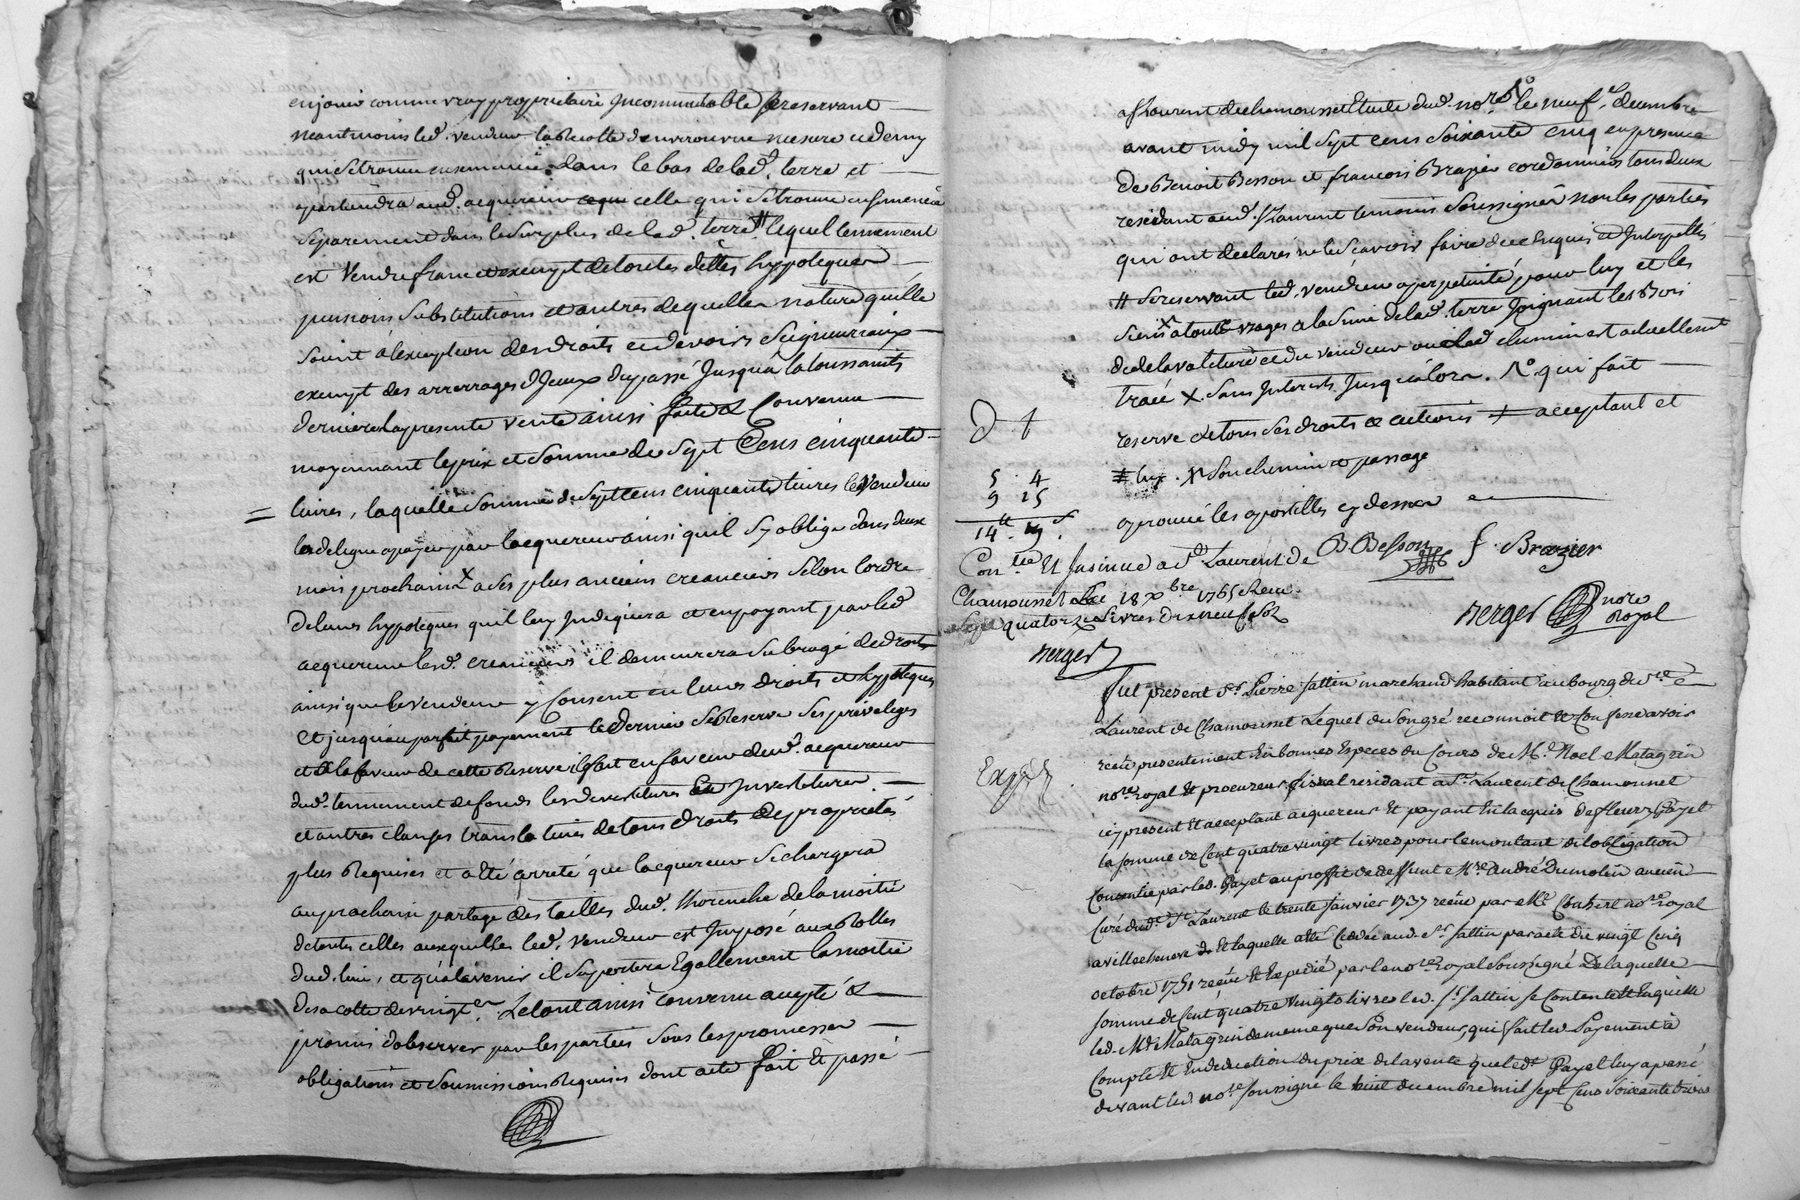 en jouir comme vray proprietaire Incommutable se reservant
neantmoins led. vendeur la Recolte d'environ une mesure et demy
qui se trouve ensemencé dans le bas de lad. terre et
apartiendra aud. acquereur celle qui se trouve ensemencé
separement dans le surplus de lad. terre # lequel tennement
est Vendu franc et exempt de toutes dettes hypoteques
pensions substitutions et autres de quelles nature quille
soint a l'exception des droits et devoirs Seigneuriaux
exempt des arrerrages d'Jceux du passé Jusqua la toussaints
derniere la presente vente ainsi faite & Convenue
moyennant le prix et somme de sept Cens cinquante
livres, laquelle somme de sept cens cinquante livres le Vendeur
delegue a payer par lacquereur ainsi quil s'y oblige dans deux
mois prochain X a ses plus anciens creanciers selon lordre
de leurs hypoteques quil luy Indiquera et en payant par led
acquereur lesd. creanciers il demeurera subrogé de droits
ainsi que le vendeur y Consent en leurs droits et hypoteques
Et jusqu'au parfait payement le dernier se Reserve ses privileges
et a la faveur de cette Reserve il fait en faveur dud. acquereur
dud. tennement de fonds les devestitures Investitures
et autres clauses translatives de tous droits de proprietés
plus Requises et a été arreté que lacquereur se chargera
au prochain partage des tailles dud. thorenche de la moitié
de toutes celles auxquelles led. vendeur est Imposé aux Rolles
dud. lieu, et qu'a lavenir il suportera Egallement la moitié
de sa cotte de vingt.er Le tout ainsi convenu accepté &
promis d'observer par les parties sous les promesses
obligations et soumissions Requises dont acte fait Et passé
a St Laurent de chamousset Etude dud. nore. le neuf.e decembre
avant midy mil sept cens soixante cinq en presence
de Benoit Besson et francois Brazier cordonniers tous deux
residant aud. St Laurent temoins soussignés non les parties
qui ont declarés ne le scavoir faire de ce enquis et Interpellés
# se reservant led. vendeur a perpetuité pour luy et les
siens a tout usages a la sime de lad. terre Joignant les Bois
de delavalture et du vendeur ou led chemin est actuellement
tracé X sans Interets Jusqu'alors. qui fait
reserve de tous ses droits & actions acceptant et
# luy. son chemin et passage
aprouvé les apostilles cy dessus
5 . 4
9 15
14 tt . 19 s.
B Besson F. Brazier
Con.lée Et Insinué a St Laurent de
Chamousset Le 18 xbre 1765 Recu
quatorze Livres dix neuf sols
Berger
Berger nore Royal
Fut present Sr. Pierre fattin marchand habitant au bourg de St
Laurent de Chamousset Lequel de son gré reconnoit et confesse avoir
receu presentement En bonnes Especes du Cours de Me Noel Matagrin
nore. royal Et procureur fiscal residant a St. Laurent de Chamousset
icy present Et acceptant acquereur Et payant En lacquis de fleury Payet
la somme de Cent quatre vingt livres pour le montant de lobligation
Consentie par led. Payet au proffit de deffunt Mre André Dumolin ancien
Curé dud. St Laurent le trente Janvier 1737 receue par Me Chabert nore royal
a villecheneve Et laquelle a été Cedée aud. Sr. fattin par acte du vingt Cinq
octobre 1751 receu Et Expedié par le nore royal soussigné De laquelle
somme de Cent quatre vingts livres led. Sr. fattin se Contente Et En quitte
led. Me Matagrin de meme que son vendeur, qui fait led Payement a
Compte Et En deduction du prix de la vente que led Payet luy a passé
devant led. nore soussigné le huit decembre mil sept Cens soixante trois